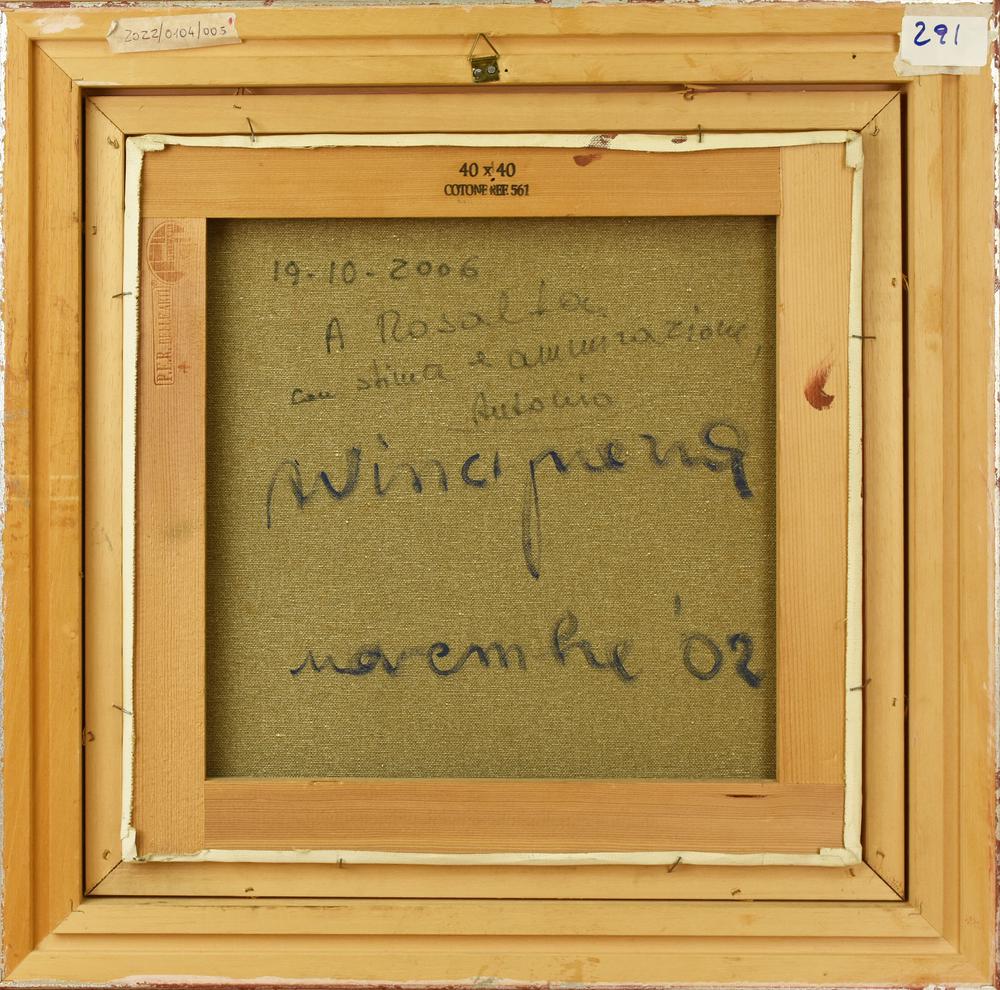 2022/0104/005
291
40 x 40
COTONE REF. 561
P.E.R. BELLE ARTI
19-10-2006
A Rosalta
con stima e ammirazione,
Antonio
AVinciguerra
novembre '02